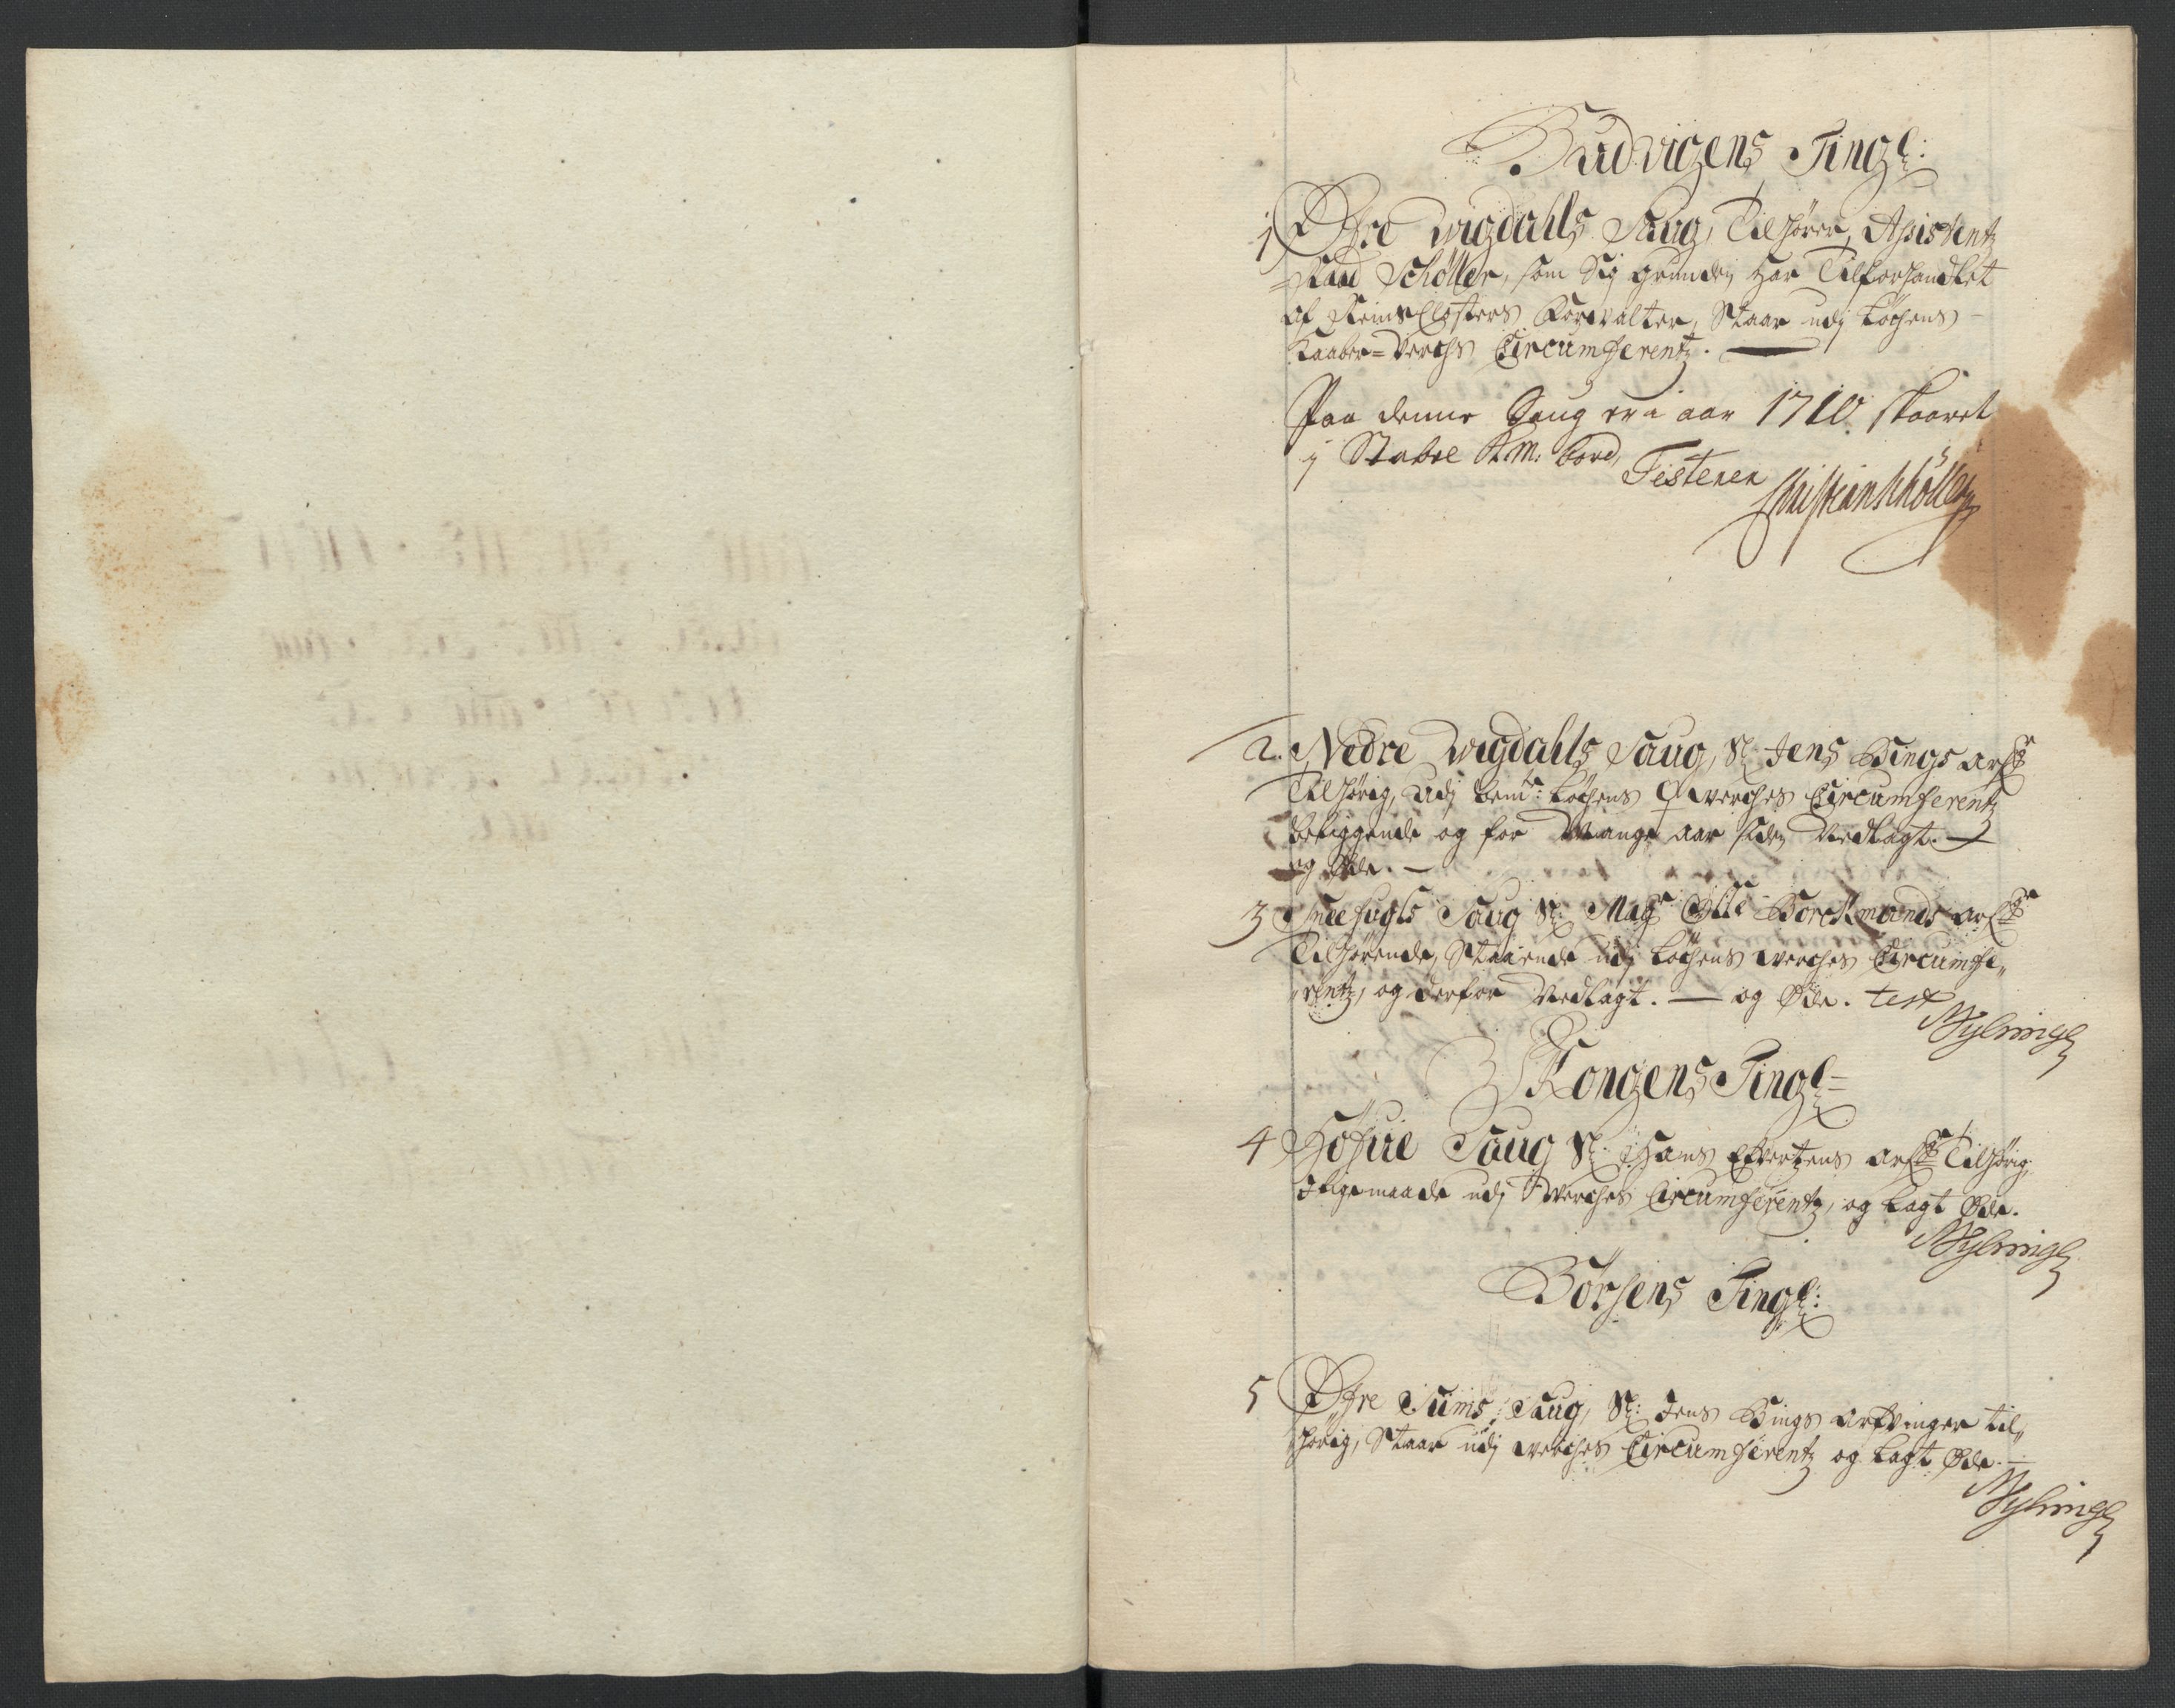 Budvigens Tingl:
1 Øfre Wigdahls Saug, Tilhører Assistentz
=Raad Schøller, som Sig Grunden har Tilforhandlet
af ReinsClosters Forvalter, Staar udj Løchens
Kaaber=Verchs Circumferentz.
Paa denne Saug er i aar 1710 skaaret
j Stabel bord,
Testerer
Christian Schøller
2. Nedre Wigdahls Saug, Sl: Jens Bings arf:
Tilhørig, Udj bemte: Løchens Werches Circumferentz
beliggende og for Mange aar siden Nedlagt.
og Øde.
3 Sneefugls Saug Sl: Magr: Olle Borchmands arf:
Tilhørende, Staaende udj Løchens Werches Circumfe„
„rentz, og derfor Nedlagt. — og Øde. test
Mylningh
Kongens Tingl=
4 Hofue Saug Sl: Hans Evertzens arf: Tilhørig,
Jligemaade udj Werches Circumferentz, og Lagt Øde.
Mylningh
Børsens Tingl:
5 Øfre Viims Saug, Sl: Jens Bings Arfvinger til„
hørig, Staar udj Werches Circumferentz og Lagt Øde.
Mylningh